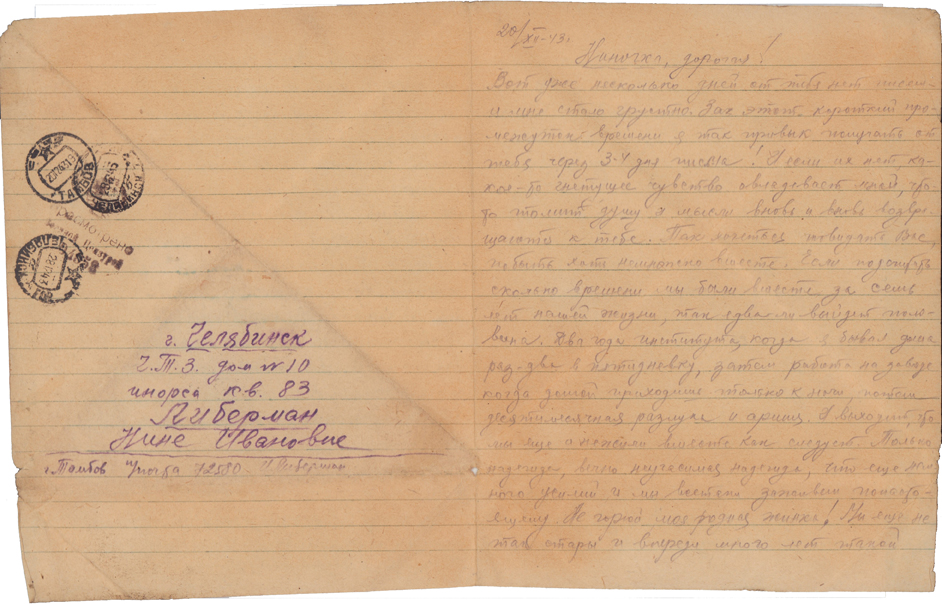 просмотрено
г. Челябинск
Ч.Т.З. дом № 10
инорса кв. 83
Либерман
Нине Ивановне
г. Тамбов п/почта 72580 Либерман
20/XII-43
Ниночка, дорогая!
Вот уже несколько дней от тебя нет писем
и мне стало грустно. За этот короткий про-
межуток времени я так привык получать от
тебя через 3-4 дня письма! И если их нет ка-
кое-то гнетущее чувство овладевает мной, что-
то томит душу а мысли вновь и вновь возвра-
щаются к тебе. Так хочется повидать Вас,
побыть хоть немножко вместе. Если подсчитать
сколько времени мы были вместе за семь
лет нашей жизни, так едва ли выйдет поло-
вина. Два года института, когда я бывал дома
раз-два в пятидневку, затем работа на заводе
когда домой приходишь только к ночи, потом
десятимесячная разлука и армия. И выходит, что
мы еще и не жили вместе как следует. Только
надежда, вечно неугасимая надежда, что еще нем-
ного усилий и мы вместе заживем по насто-
ящему. Не горюй моя родная женка! Мы еще не
так стары и впереди много лет такой